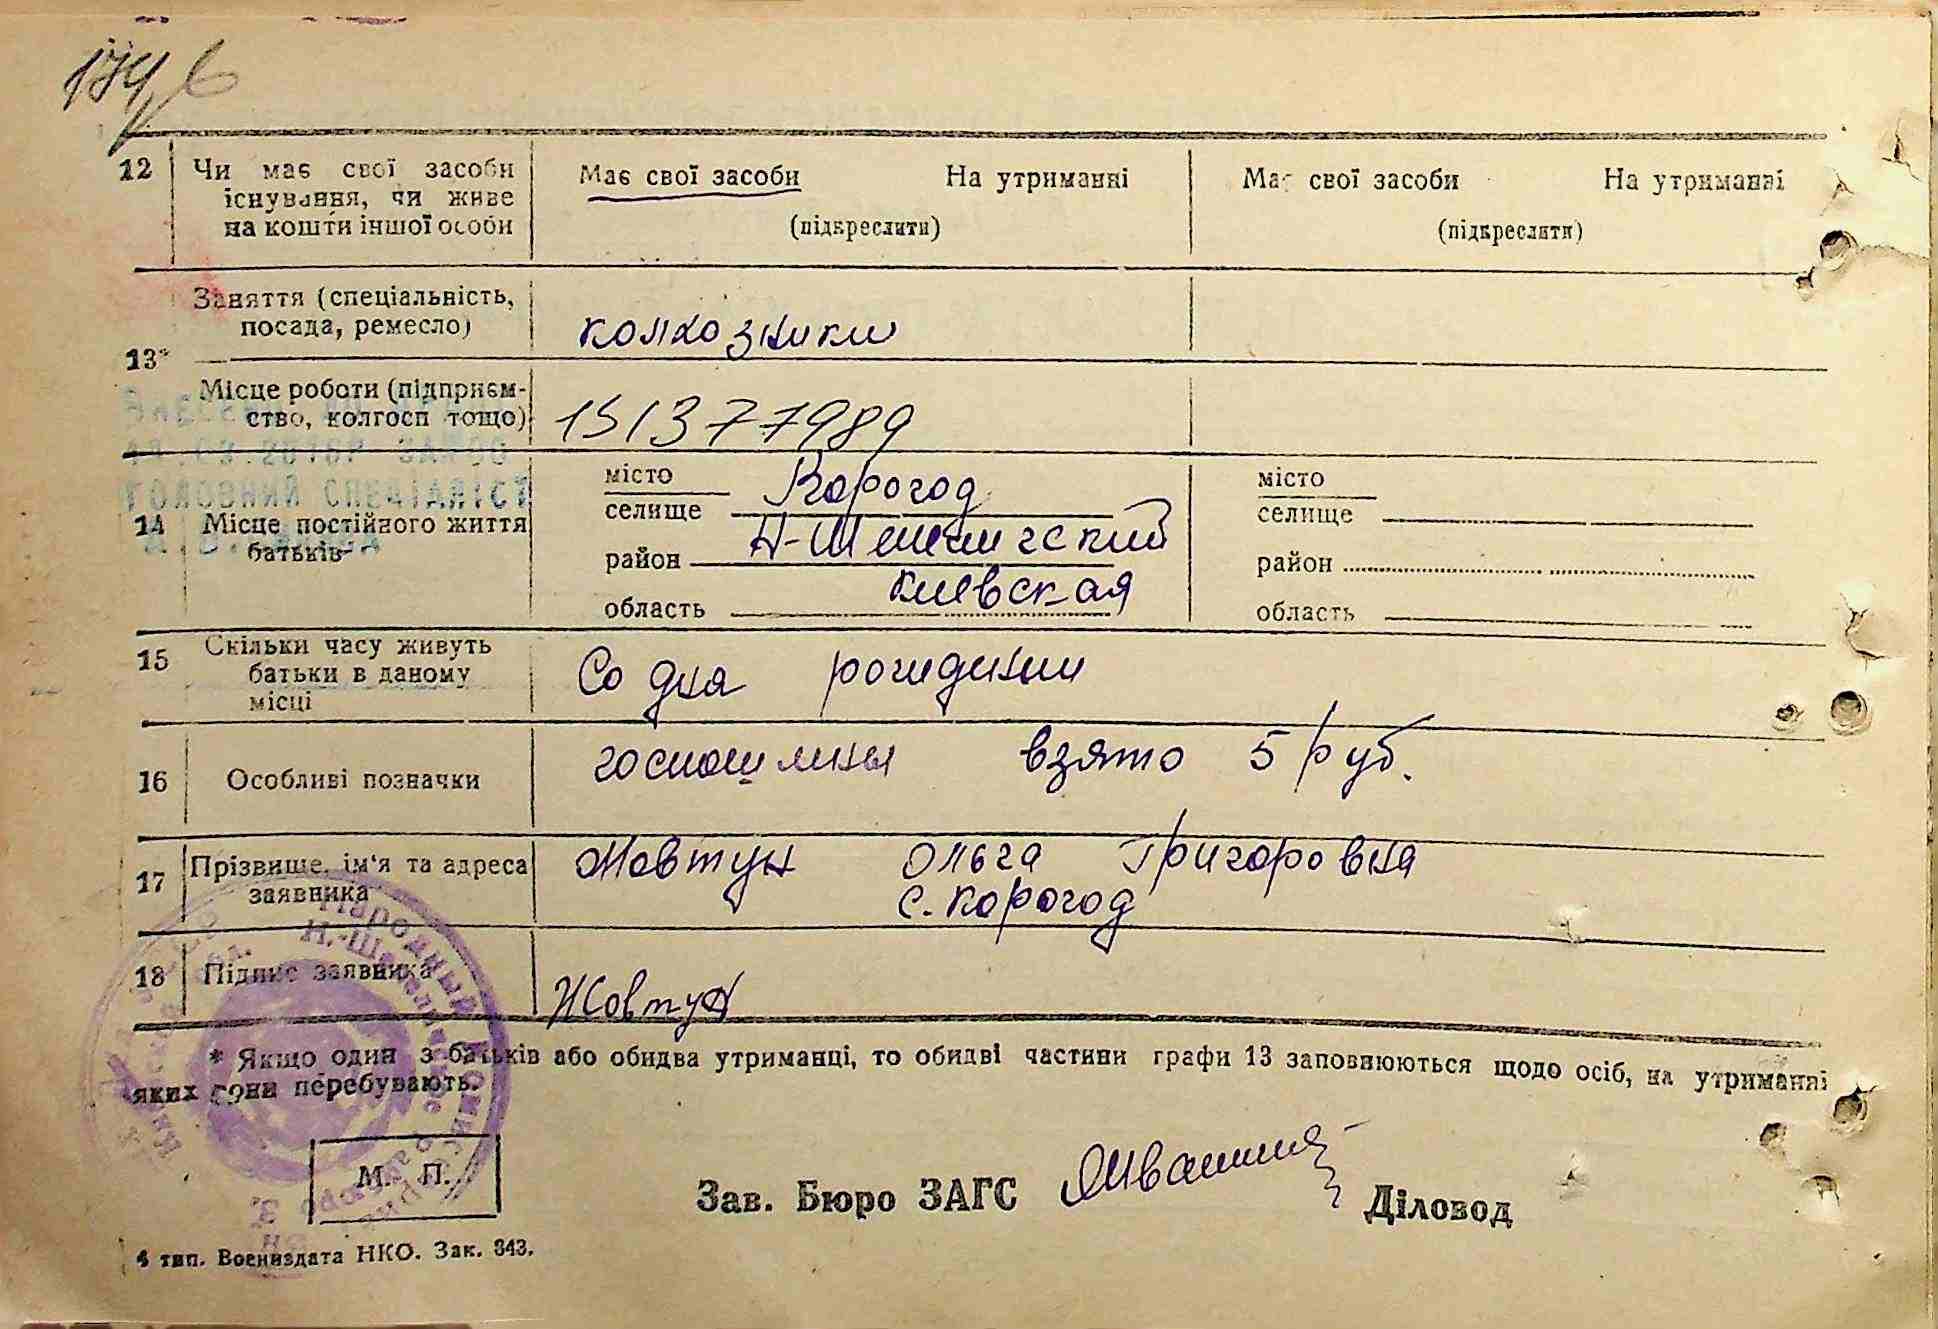 12 Чи має свої засоби Має свої засоби На утриманні Має свої засоби На утриманні
існування, чи живе (підкреслити) (підкреслити)
на кошти іншої особи
Заняття (спеціальність,
посада, ремесло) колхозники
13*
Місце роботи (підприєм-
ство, колгосп тощо) 151377989
місто Корогод місто
селище селище
14 Місце постійного життя
батьків
район Н-Шепеличский район
область Киевская область
15 Скільки часу живуть
батьки в даному Со дня рождения
місці
16 Особливі позначки госпошлины взято 5 руб.
17 Прізвище, ім'я та адреса Жовтун Ольга Григоровна
заявника с. Корогод
18 Підпис заявника Жовтун
* Якщо один з батьків або обидва утриманці, то обидві частини графи 13 заповнюються щодо осіб, на утриманні
яких вони перебувають.
М. П.
Зав. Бюро ЗАГС Діловод
4 тип. Воениздата НКО. Зак. 343.